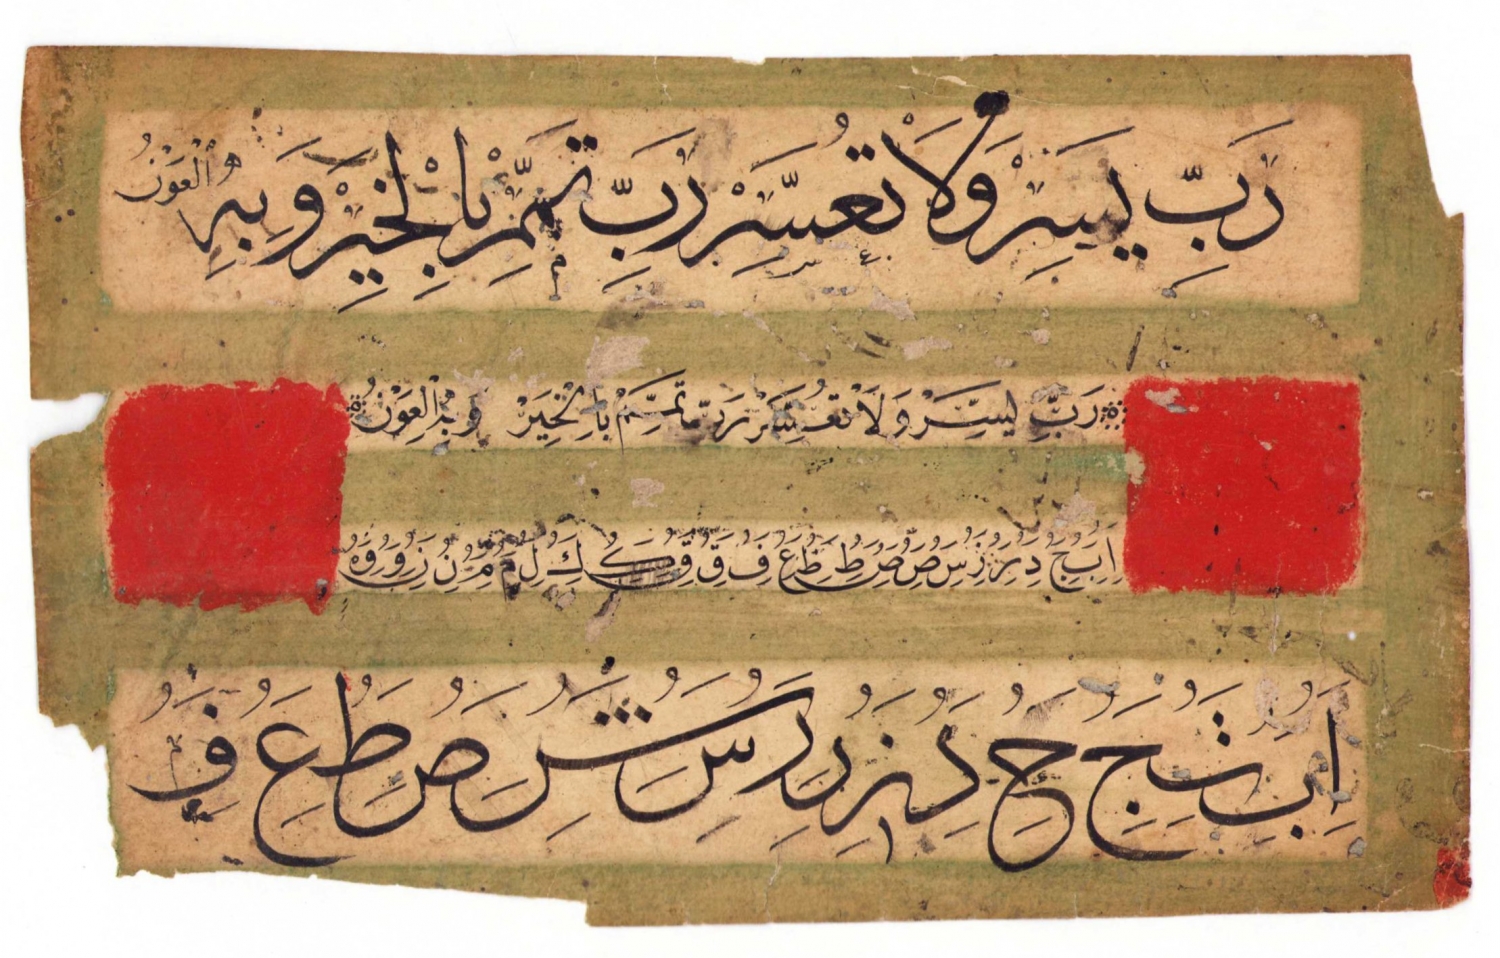 رَبِّ يَسِرْ وَلَا تُعَسِّرْ رَبِّ تَمِّمْ بِالْخَيْرِ وَبِهِ الْعَوْنُ
رَبِّ يَسِّرْ وَلَا تُعَسِّرْ رَبِّ تَمِّمْ بِالْخَيْرْ وَبِهِ الْعَوْنُ
ا ب ج د ر ز س ص ط ع ف ق ك ل م ن و
ا ب ث ج ح د ز ر س ش ص ط ع ف